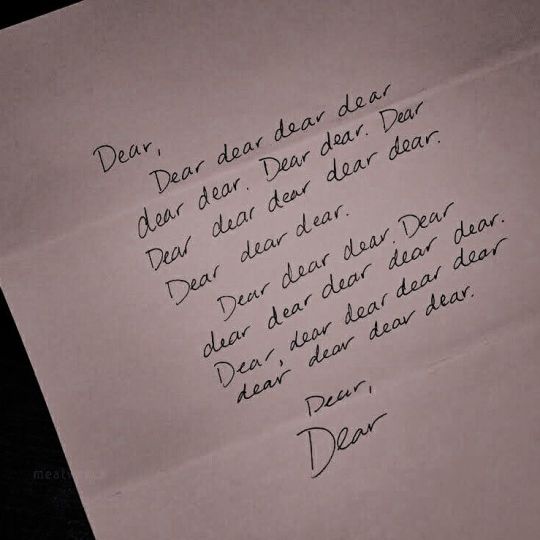 Dear,
Dear dear dear dear
dear dear. Dear dear. Dear
Dear dear dear dear dear.
Dear dear dear.
Dear dear dear. Dear
dear dear dear dear dear.
Dear, dear dear dear dear
dear dear dear dear.
Dear,
Dear